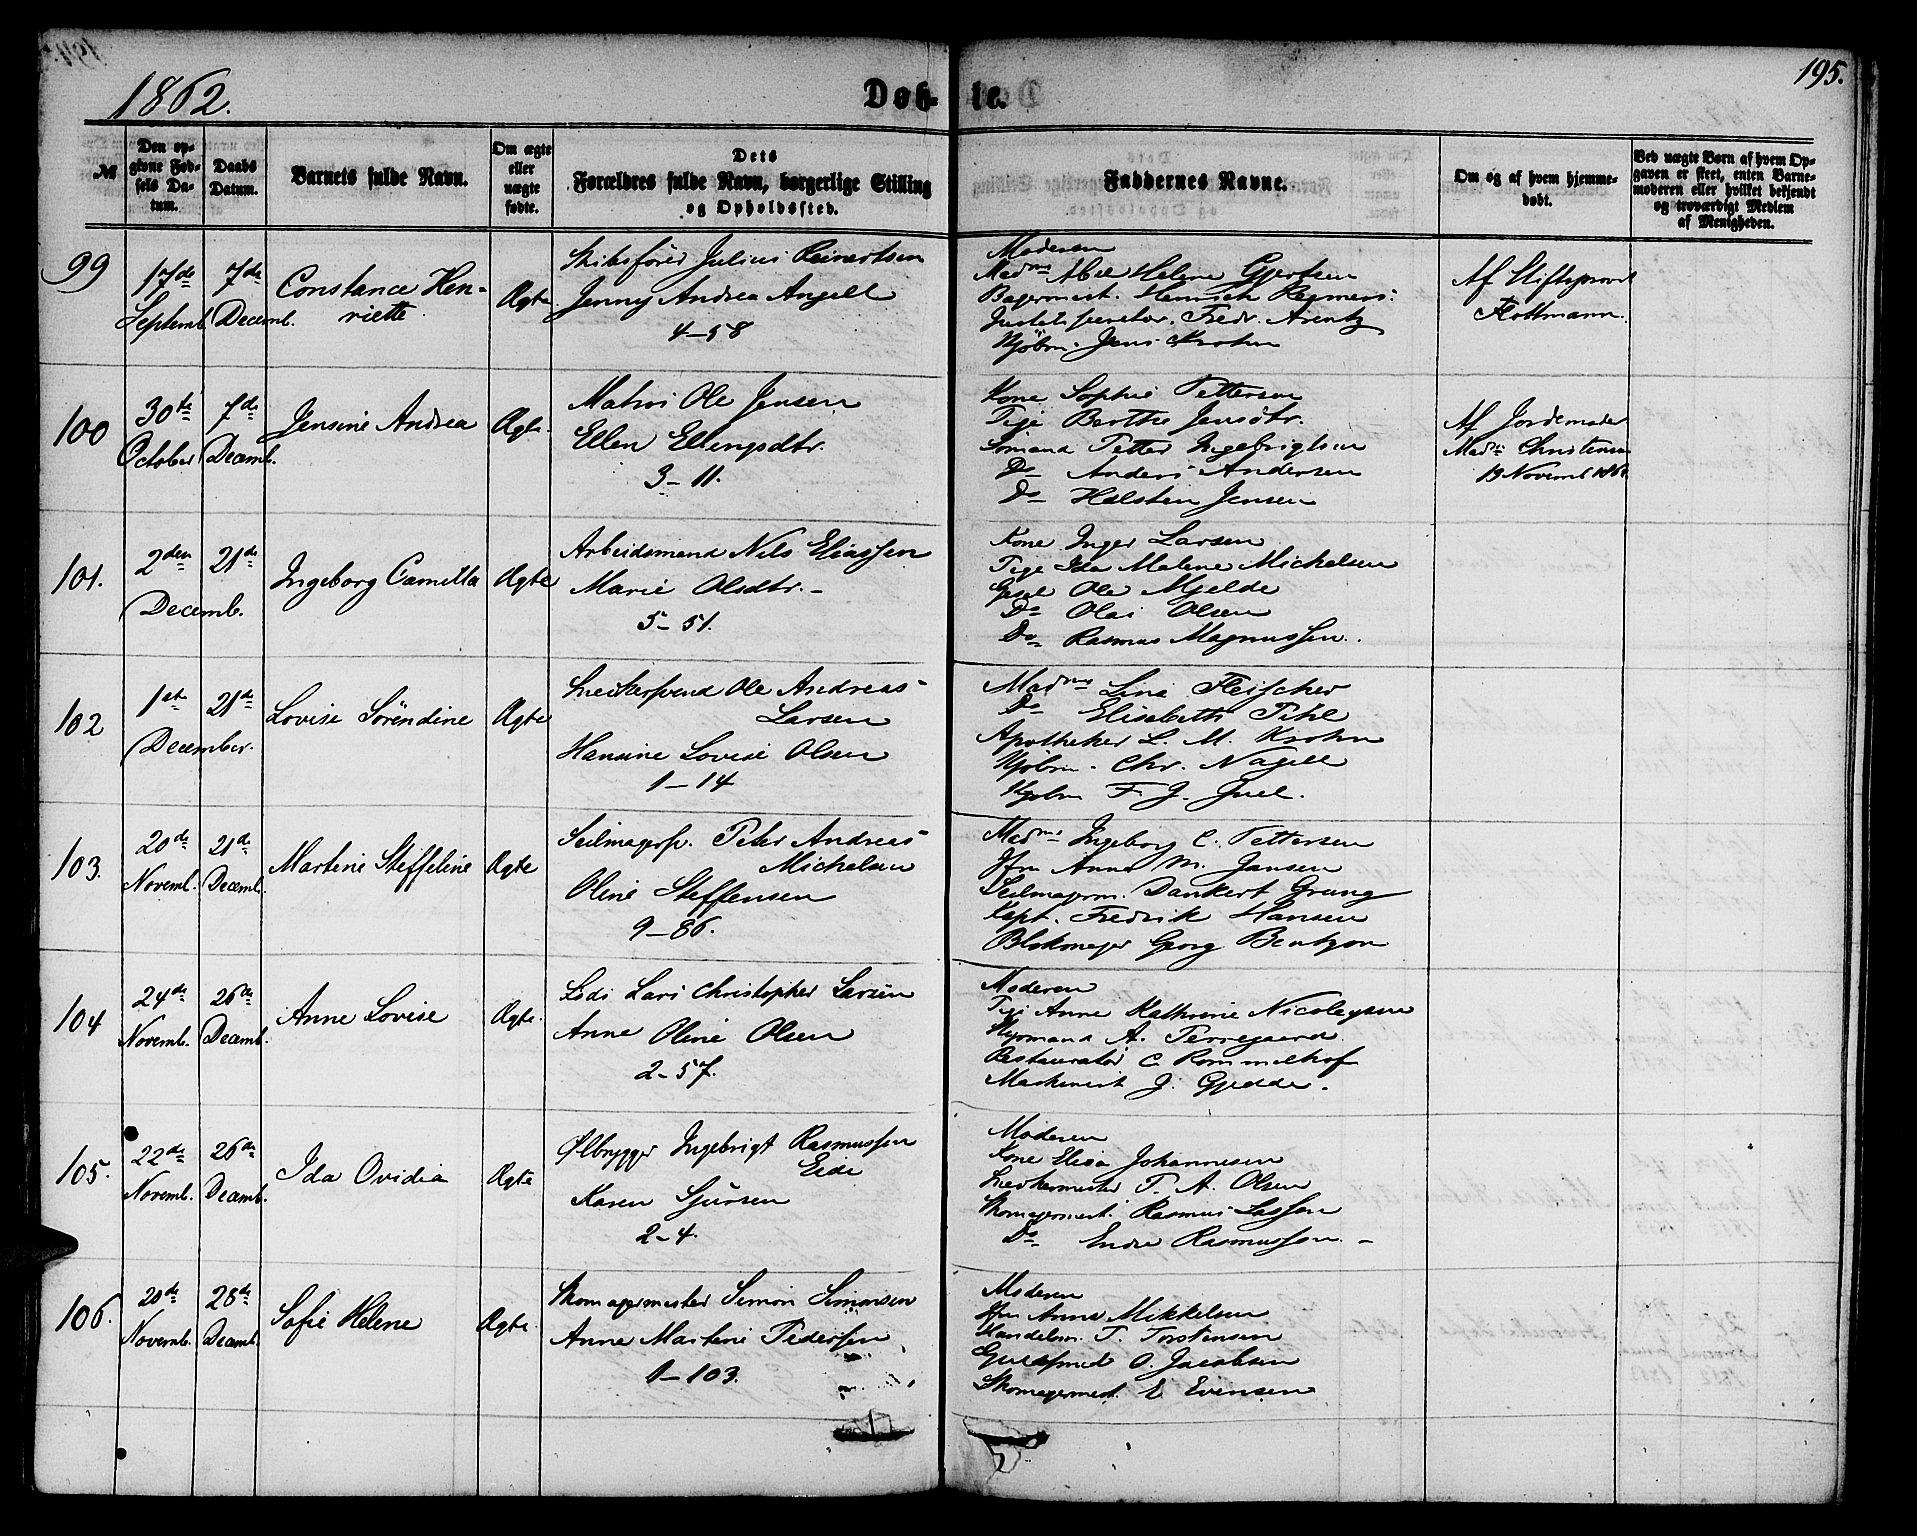 195.
1862.
Døb- te.
№
Den op-
givne Fød-
sels Da-
tum.
Daabs
Datum.
Barnets fulde Navn.
Om ægte
eller
uægte
fødte.
Dets
Forældres fulde Navn, borgerlige Stilling
og Opholdssted.
Faddernes Navne.
Om og af hvem hjemme-
døbt.
Ved uægte Børn af hvem Op-
gaven er skeet, enten Barne-
moderen eller hvilket bekjendt
og troværdigt Medlem
af Menigheden.
99
17de
Septemb.
7de
Decemb.
Constance Hen-
riette
Ægte
Skibsfører Julius Reinertsen
Jenny Andrea Angell
4-58
Moderen
Madme Helene Gjertsen
Bagermest. Henrich
Fredr. Arentz
Kjøbm. Jens Krohn
Af Stiftsprovst
100
30te
October
7de
Decemb.
Jensine Andrea
Ægte
Matros Ole Jensen
Ellen Ellingsdtr.
3-11.
Kone Sophie Pettersen
Pige Berthe Jensdtr.
Sømand Petter Ingebrigtsen
Do Anders Andersen
Do Halsten Jensen
Af Jordemoder
Mad. Christensen
13 Novemb 186
101.
2den
Decemb.
21de
Ingeborg Camilla
Ægte
Arbeidsmand Nils Eliassen
Marie Olsdtr.-
5-51.
Kone Inger Larsen
Pige Ida Malene Michelsen
Ole Mjelde
Do Olai Olsen
Do Rasmus Magnussen.
102
1ste
December.
21de
Lovise Sørendine
Ægte
Snedkersvend Ole Andreas
Larsen
Hansine Lovise Olsen
1-14
Madme Lina Fleischer
Do Elisabeth Pihl
Apotheker L. M. Krohn
Kjøbm. Chr. Nagell
Kjøbm F. J. Juel.
103.
20de
Novemb.
21de
Decemb.
Martine Steffeline
Ægte
Seilmagersv. Peter Andreas
Michelsen
Oline Steffensen
9-86.
Madme Ingeborg C. Pettersen
Jfr Anne M. Jansen
Seilmagerm. Dankert Grung
Kapt. Fredrik Hansen
Blokmager Georg Bentzon
104
24de
Novemb.
26de
Decemb.
Anne Lovise
Ægte.
Lods Lars Christopher Larsen
Anne Oline Olsen
2-57.
Moderen
Pige Anne Kathrine Nicolaysen
Styrmand A. Terregaard
Restauratør C. Rommelhof
Maskinist J. Gjedde.
105.
22de
Novemb.
26de
Decemb.
Ida Ovidia
Ægte
Ølbrygger Ingebrigt Rasmussen
Eide
Karen Sjursen
2-4.
Moderen
Kone Elisa Johannesen
Snedkermester T. A. Olsen
Skomagermest. Rasmus Lassen
Do Endre Rasmussen.-
106.
20de
Novemb.
28de
Decemb.
Sofie Helene
Ægte.
Skomagermester Simon Simonsen
Anne Martine Pedersen
1-103.
Moderen
Jfr Anne Mikkelsen
Handelsm. T. Torstensen
Guldsmed O. Jacobsen
Skomagermest. E. Evensen